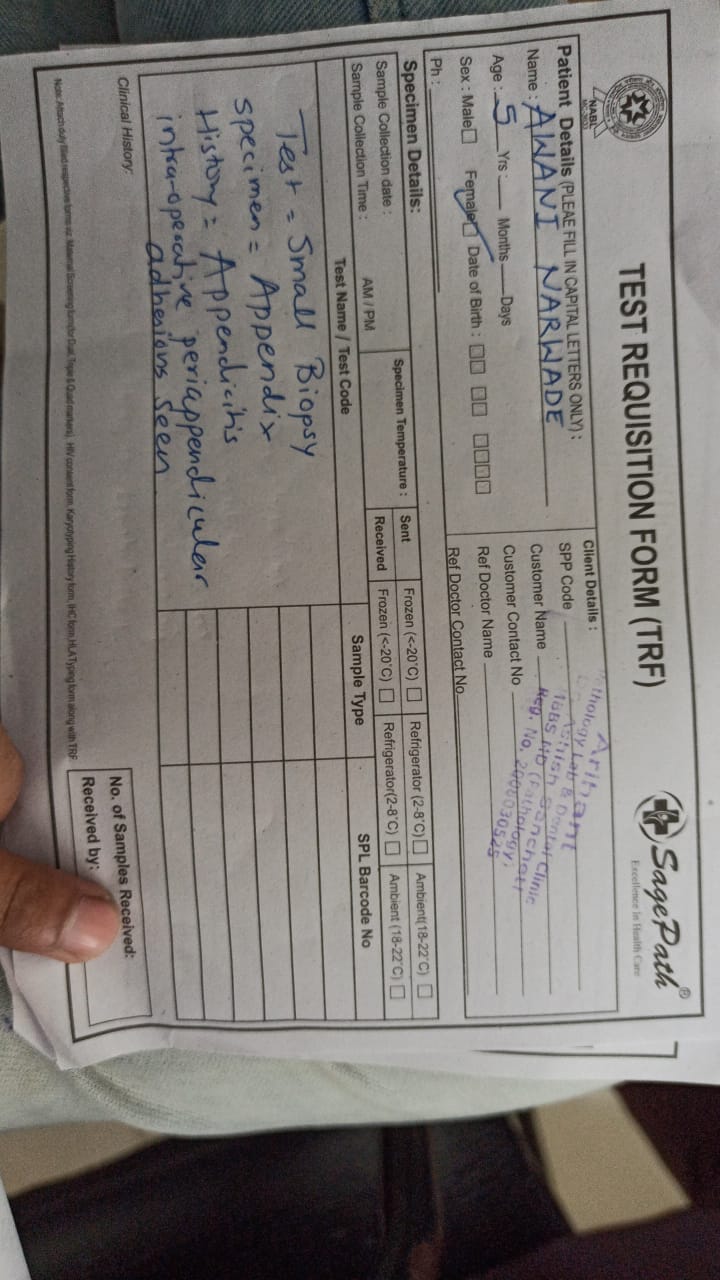 TEST REQUISITION FORM (TRF)
NABL
SagePath®
Excellence In Health Care
Patient Details (PLEAE FILL IN CAPITAL LETTERS ONLY) :
Name : AWANI NARWADE
Age : 5 Yrs : Months Days
Sex : Male Female Date of Birth :
Ph :
Client Details :
SPP Code
Customer Name
Customer Contact No
Ref Doctor Name
Ref Doctor Contact No
Arihant
Pathology Lab & Dental Clinic
Reg. No.
Specimen Details:
Sample Collection date :
Sample Collection Time : AM / PM
Specimen Temperature :
Sent Frozen (<-20°C) Refrigerator (2-8°C) Ambient(18-22°C)
Received Frozen (<-20°C) Refrigerator(2-8°C) Ambient (18-22°C)
Test Name / Test Code Sample Type SPL Barcode No
Test = Small Biopsy
Specimen = Appendix
History = Appendicitis
intra-operative periappendicular
adhesions seen
Clinical History:
No. of Samples Received:
Received by:
Note: Attach duly filled respective forms viz. Maternal Screening form(for Dual, Triple & Quad markers), HIV consent form, Karyotyping History form, IHC form, HLA Typing form along with TRF